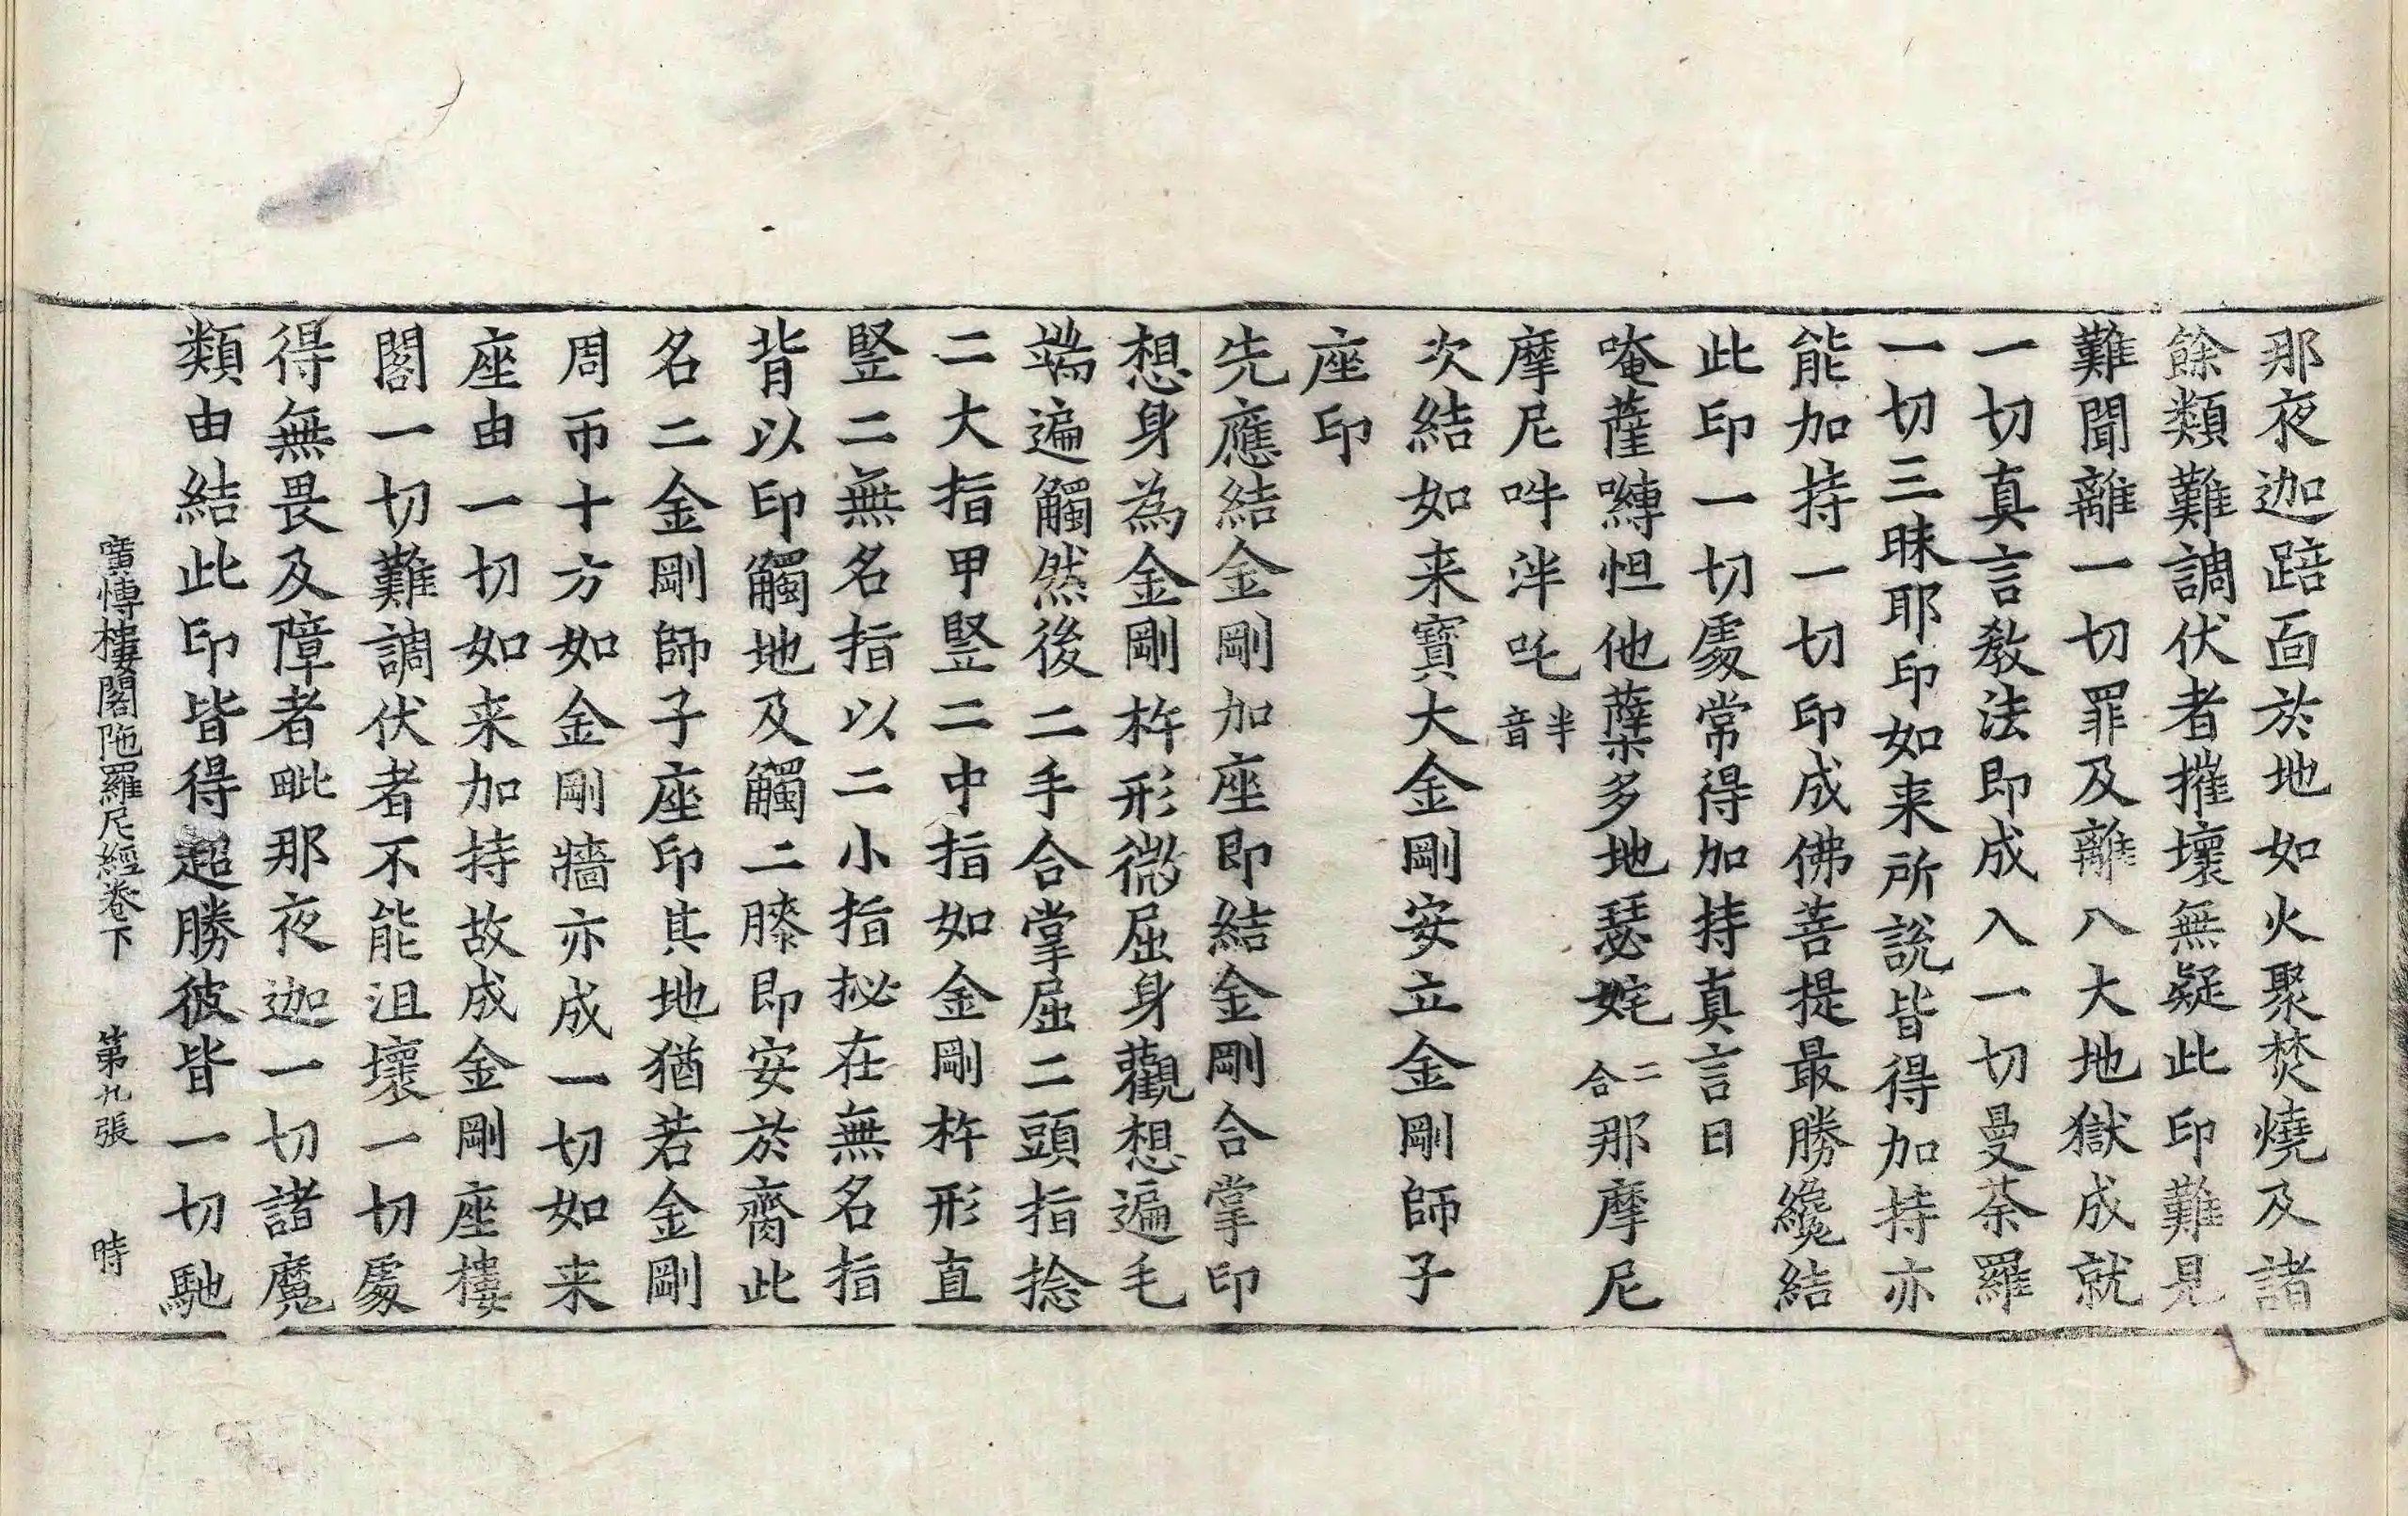 那夜迦踣面於地如火聚焚燒及諸
餘類難調伏者摧壞無疑此印難見
難聞離一切罪及離八大地獄成就
一切真言教法即成入一切曼荼羅
一切三昧耶印如来所說皆得加持亦
能加持一切印成佛菩提最勝纔結
此印一切處常得加持真言曰
唵薩嚩怛他蘖多地瑟姹二合那摩尼
摩尼吽泮吒半音
次結如来寶大金剛安立金剛師子
座印
先應結金剛加座即結金剛合掌印
想身為金剛杵形微屈身觀想遍毛
端遍觸然後二手合掌屈二頭指捻
二大指甲竪二中指如金剛杵形直
竪二無名指以二小指拟在無名指
背以印觸地及觸二膝即安於齊此
名二金剛師子座印其地猶若金剛
周帀十方如金剛牆亦成一切如来
座由一切如来加持故成金剛座樓
閣一切難調伏者不能沮壞一切處
得無畏及障者毗那夜迦一切諸魔
類由結此印皆得超勝彼皆一切馳
廣愽樓閣陁羅尼經卷下 第九張 時